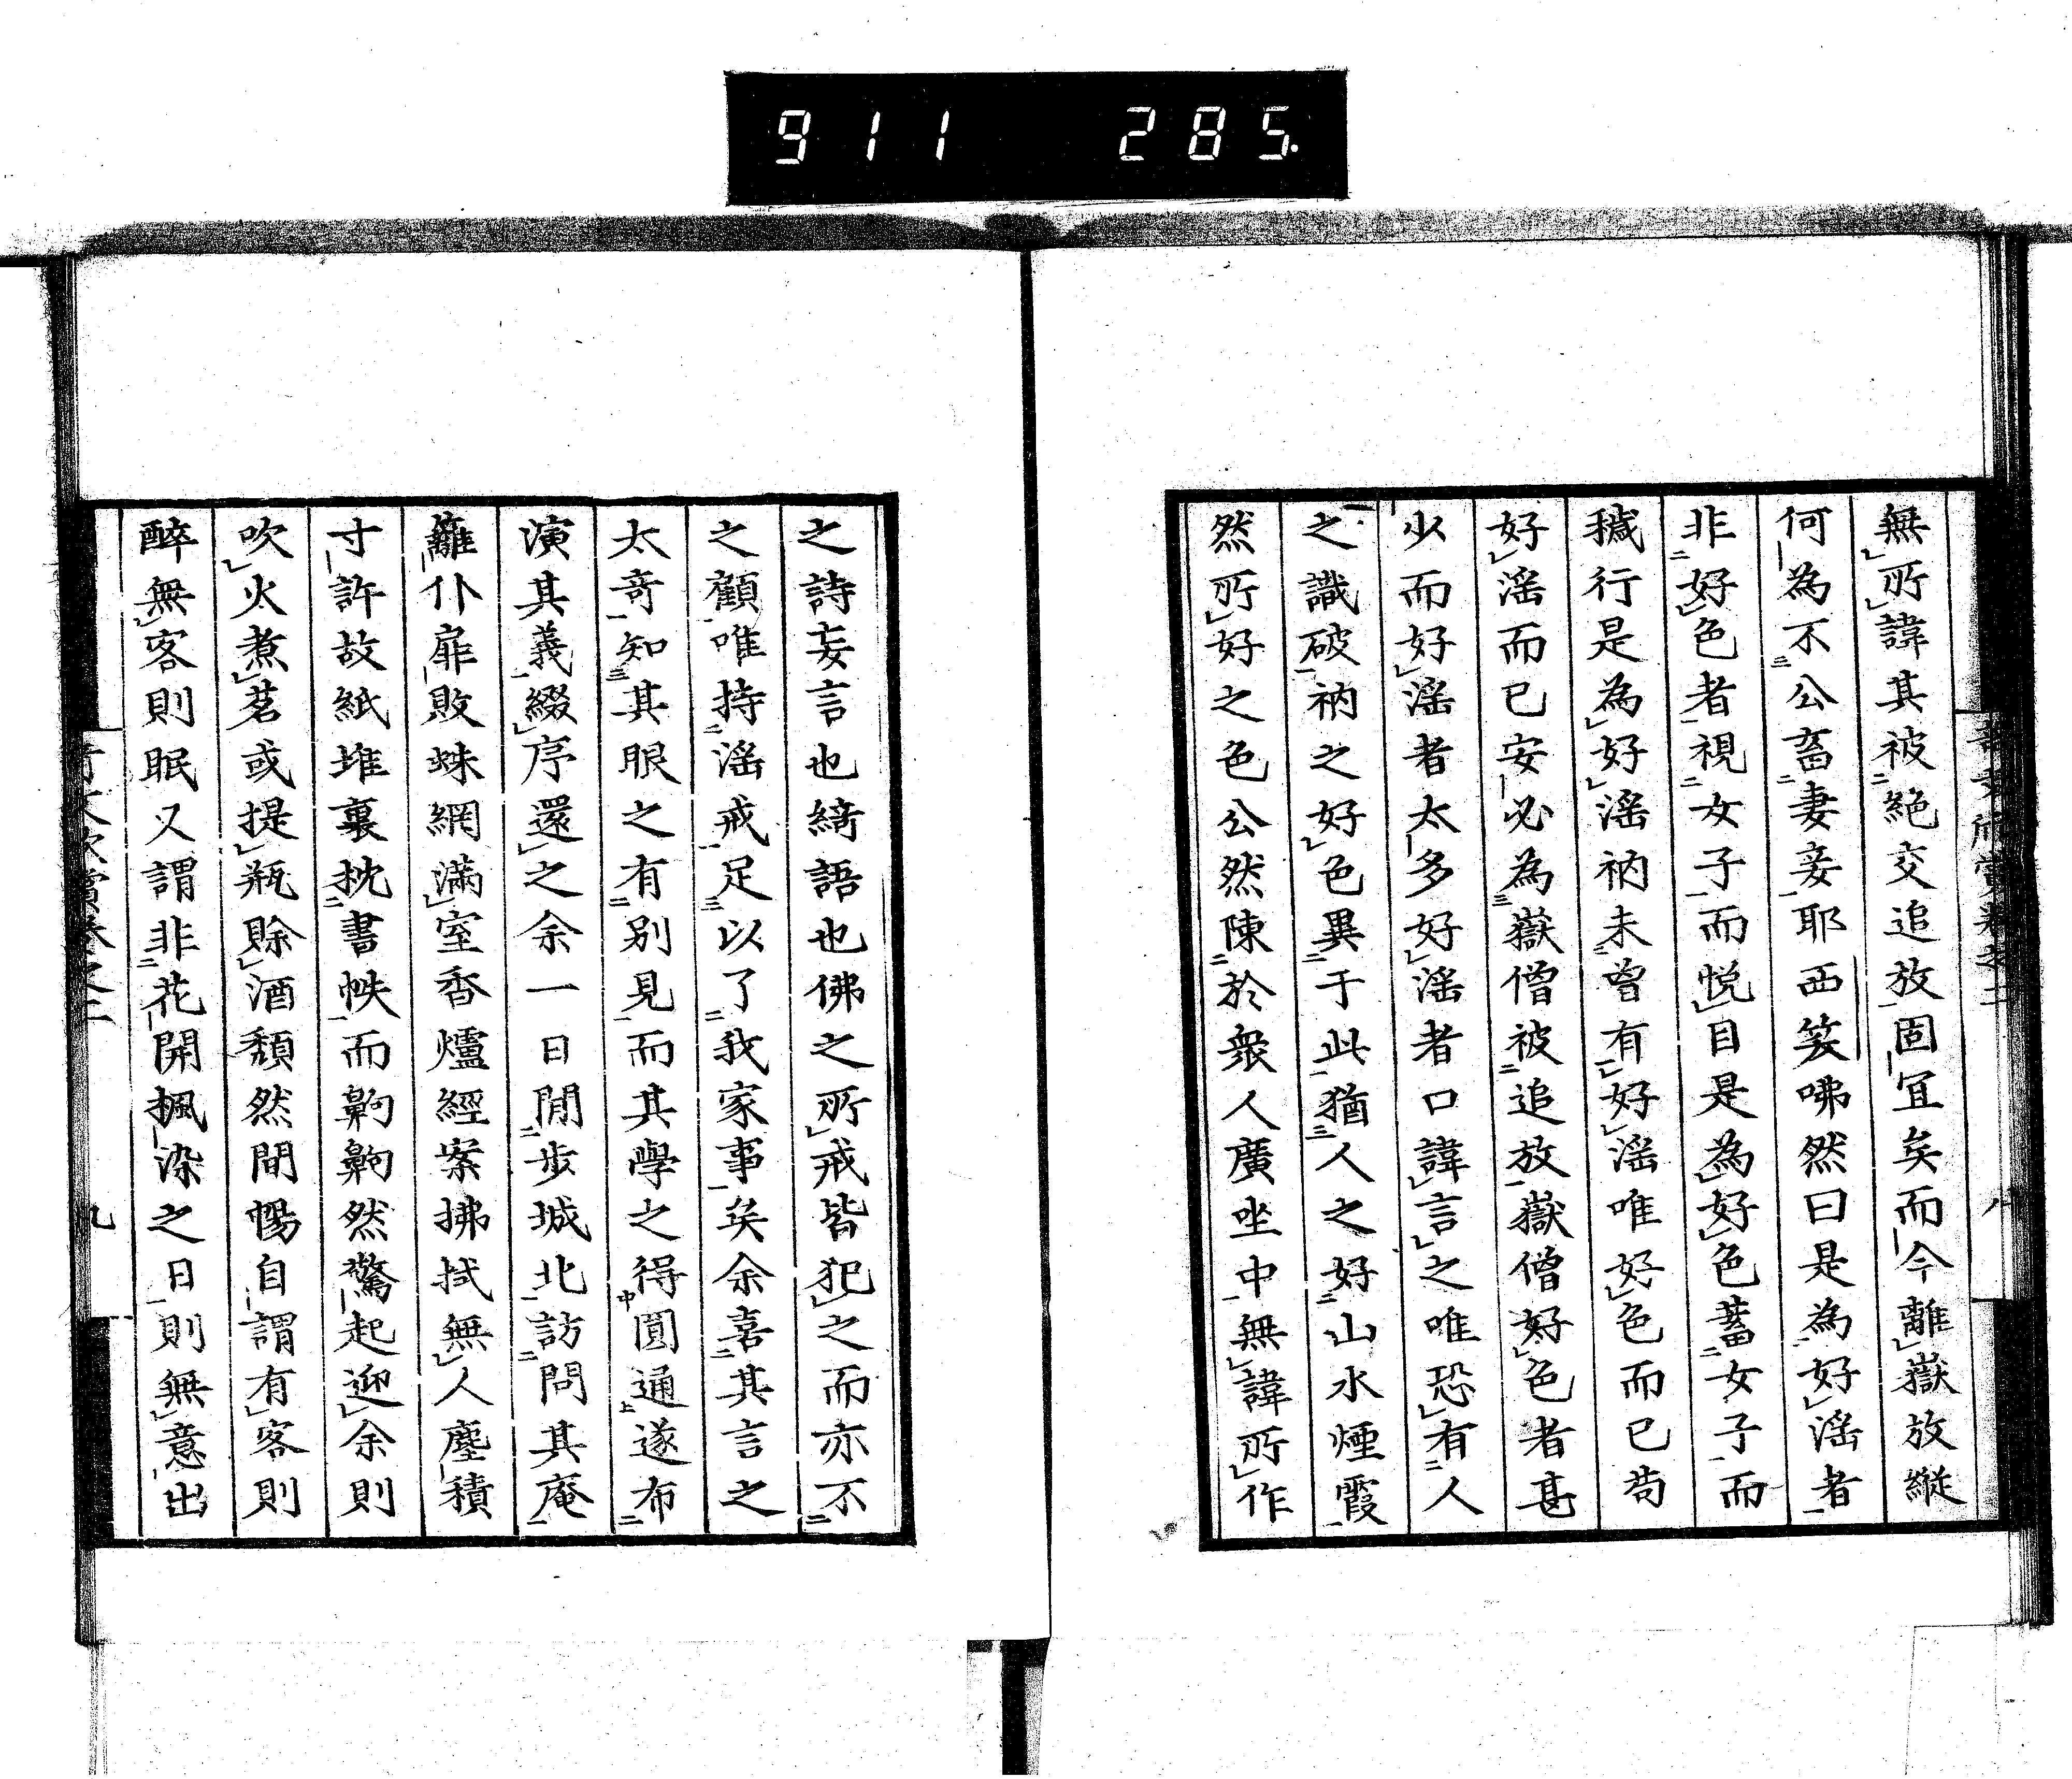 911 285.
無所諱其被絶交追放固冝矣而今離嶽放縦
何為不公畜妻妾耶西笑咈然曰是為好滛者
非好色者視女子而悦目是為好色蓄女子而
穢行是為好滛衲未曾有好滛唯好色而已苟
好滛而已安必為嶽僧被追放嶽僧好色者甚
少而好滛者太多好滛者口諱言之唯恐有人
之識破衲之好色異于此猶人之好山水煙霞
然所好之色公然陳於衆人廣坐中無諱所作
之詩妄言也綺語也佛之所戒皆犯之而亦不
之顧唯持滛戒足以了我家事矣余喜其言之
太竒知其眼之有別見而其學之得圓通遂布
演其義綴序還之余一日閒歩城北訪問其庵
籬仆扉敗蛛網滿室香爐經案拂拭無人塵積
寸許故紙堆裏枕書帙而齁齁然驚起迎余則
吹火煮茗或提瓶賒酒頽然間惕自謂有客則
醉無客則眠又謂非花開楓染之日則無意出
九